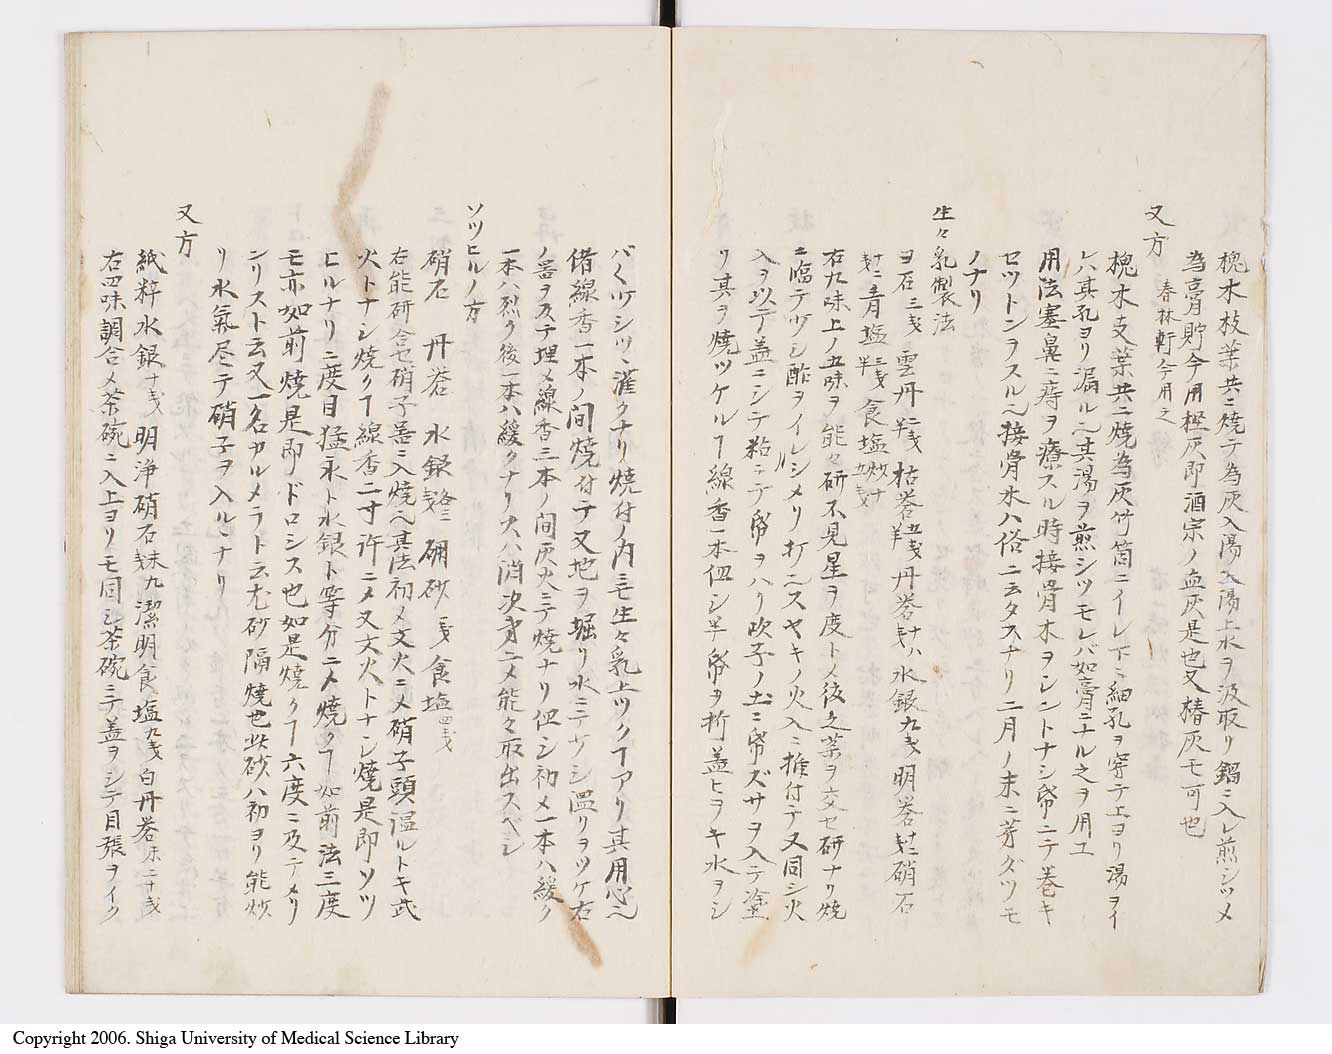 槐木枝葉共ニ焼テ為灰入湯上水ヲ汲取リ鍋ニ入レ煎シツメ
為膏貯今用樫灰即酒宗ノ血灰是也又椿灰モ可也
春林軒今用之
又方
槐木支葉共ニ焼為灰竹筒ニイレ下ニ細孔ヲ穿テ上ヨリ湯ヲイ
レハ其孔ヨリ漏ル也其湯ヲ煎シツモレバ如膏ニナル之ヲ用ユ
用法塞鼻ニ痔ヲ療スル時接骨木ヲシントナシ帋ニテ巻キ
セツトンヲスル也接骨木ハ俗ニ云タズナリ二月ノ末ニ芽ダツモ
ノナリ
生々乳製法
ヨ石三戔 雲丹 枯礬五戔 丹礬 水銀九戔 明礬 硝石
青塩 食塩
右九味上ノ五味ヲ能々研不見星ヲ度トメ後之薬ヲ交セ研ナリ焼
ニ臨テ少シ酢ヲイレシメリ打也スヤキノ火入ニ推付テ又同シ火
入ヲ以テ蓋ニシテ粘ニテ帋ヲハリ吹子ノ土ニ帋ズサヲ入テ塗
リ其ヲ焼ツケルヿ線香一本但シ半帋ヲ折蓋ヒヲキ水ヲシ
バ〱少シツヽ灌クナリ焼付ノ内ニモ生々乳上ツクヿアリ其用心也
偖線香一本ノ間焼付テ又地ヲ堀リ水ニテサシ温リヲツケ右
ノ器ヲステ埋メ線香三本ノ間灰火ニテ焼ナリ但シ初メ一本ハ緩ク
一本ハ烈ク後一本ハ緩クナリ火ハ消次第ニメ能々取出スベシ
ソツヒルノ方
硝石 丹礬 水銀 硼砂 食塩四戔
右能研合セ硝子器ニ入焼也其法初メ文火ニメ硝子頭温ルトキ武
火トナシ焼クヿ線香二寸許ニメ又文火トナシ焼是即ソツ
ヒルナリ二度目猛汞ト水銀ト等分ニメ焼クヿ如前法三度
モ亦如前焼是即ドロシス也如是焼クヿ六度ニ及テメリ
ンリスト云又一名カルメラト云尤砂隔焼也此砂ハ初ヨリ能炒
リ水氣尽テ硝子ヲ入ルヽナリ
又方
紙粹水銀十戔 明浄硝石 潔明食塩九戔 白丹礬末二十戔
右四味調合メ茶碗ニ入上ヨリモ同シ茶碗ニテ蓋ヲシテ目張ヲイク
Copyright 2006. Shiga University of Medical Science Library